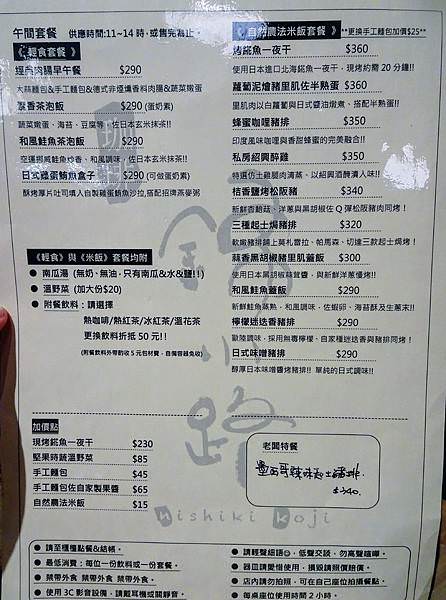 午間套餐 供應時間:11~14時,或售完為止。
《輕食套餐》
經典肉腸早午餐 $290
太蒜麵包&手工麵包&德式非煙燻香料肉腸&蔬菜嫩蛋
香茶泡飯 $290 (蛋奶素)
蔬菜嫩蛋、海苔、豆腐等,佐日本玄米抹茶!!
和風鮭魚茶泡飯 $290
空運挪威鮭魚炒香、和風調味,佐日本玄米抹茶!!
日式燻蛋鮪魚盒子 $290 (可做蛋奶素)
酥烤厚片吐司填入自製雞蛋鮪魚沙拉,搭配招牌燕麥粥
《輕食》與《米飯》套餐均附
● 南瓜湯 (無奶、無油,只有南瓜&水&鹽!!)
● 溫野菜 (加大份$20)
● 附餐飲料:請選擇
熱咖啡/熱紅茶/冰紅茶/溫花茶
更換飲料折抵 50 元!!
(附餐飲料外帶酌收 5 元包材費,自備容器免收)
加價點
現烤鯕魚一夜干 $230
堅果時蔬溫野菜 $85
手工麵包 $45
手工麵包佐自家製果醬 $65
自然農法米飯 $15
《自然農法米飯套餐》 **更換手工麵包加價$25**
烤鯕魚一夜干 $360
使用日本進口北海鯕魚一夜干,現烤約需 20 分鐘!!
蘿蔔泥燴豬里肌佐半熟蛋 $360
里肌肉以白蘿蔔與日式醬油燉煮、搭配半熟蛋!!
蜂蜜咖哩豬排 $350
印度風味咖哩與香甜蜂蜜的完美融合!!
私房紹興醉雞 $350
特選仿土雞腿肉清蒸、以紹興酒醃漬入味!!
桔香鹽烤松阪豬 $340
新鮮杏鮑菇、洋蔥與黑胡椒佐Q彈松阪豬肉同烤!
三種起士焗豬排 $320
軟嫩豬排鋪上莫札雷拉、帕馬森、切達三款起士焗烤!
蒜香黑胡椒豬里肌蓋飯 $300
使用日本黑胡椒蒜茸醬,與新鮮洋蔥慢烤!!
和風鮭魚蓋飯 $290
新鮮鮭魚蒸熟,和風調味,佐蝦卵、海苔酥及生蔥末!!
檸檬迷迭香豬排 $290
歐陸調味,採用無毒檸檬、自家種迷迭香與豬排同烤!
日式味噌豬排 $290
醇厚日本味噌醬烤豬排!! 單純的日式調味!!
老闆特餐
墨西哥辣味起士豬排.
$340.
鍋小路
nishiki koji
● 請至櫃檯點餐&結帳。
● 最低消費:每位一份飲料或一份套餐。
● 禁帶外食 禁帶外食 禁帶外食。
● 使用 3C 影音設備,請戴耳機或關靜音。
● 請輕聲細語☺,低聲交談,勿高聲喧嘩。
● 器皿請愛惜使用,損毀請照價賠償。
● 店內請勿拍照,可在自己座位拍攝餐點。
● 每桌座位使用時間 2 小時。